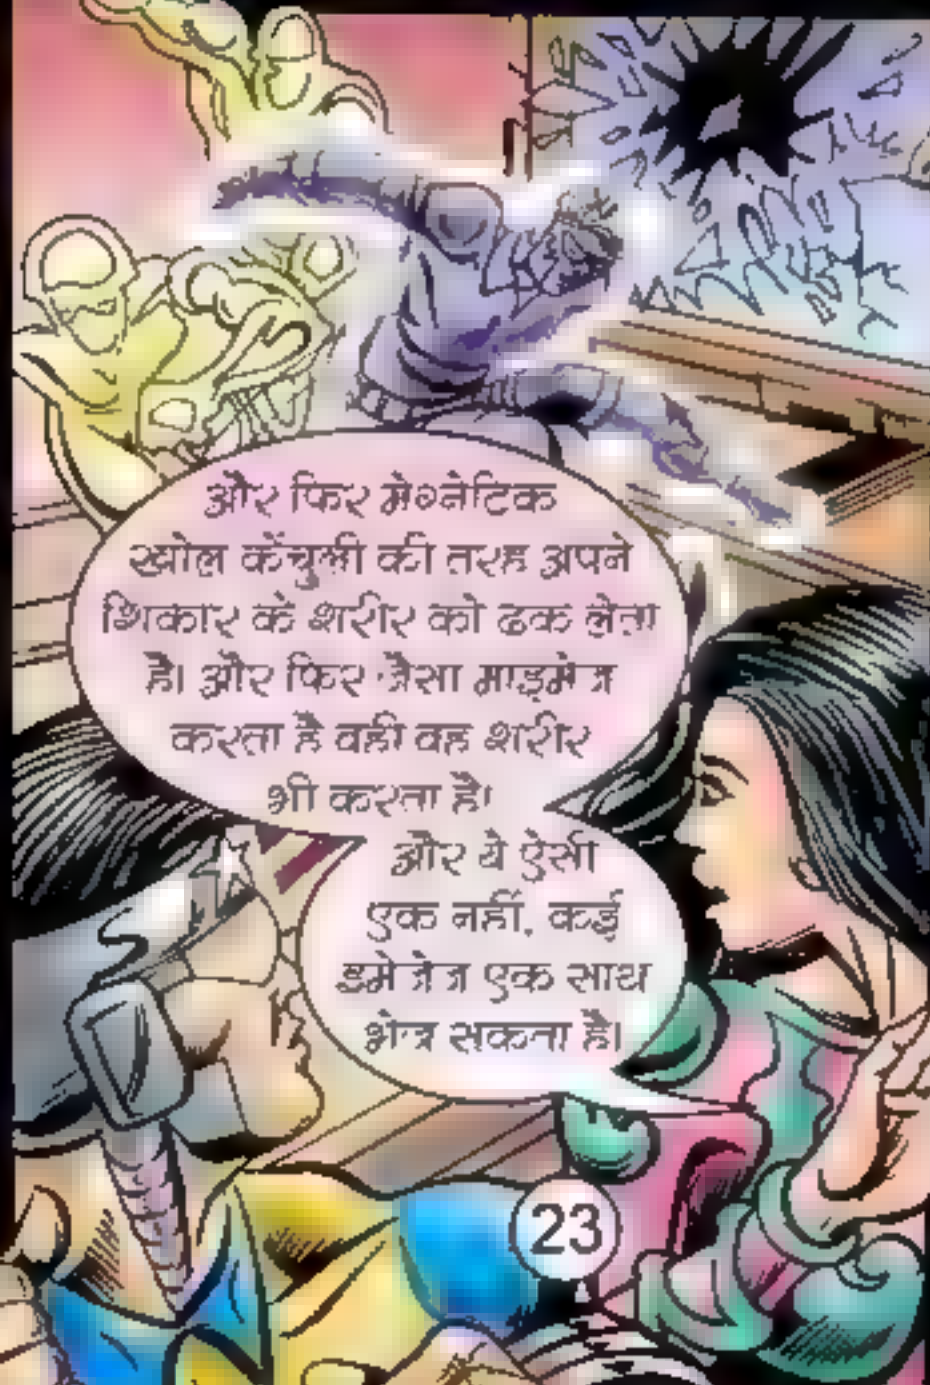 और फिर मेग्नेटिक
खोल केंचुली की तरह अपने
शिकार के शरीर को ढक लेता
है। और फिर जैसा माइमेज
करता है वही वह शरीर
भी करता है।
और ये ऐसी
एक नहीं, कई
इमेजेज एक साथ
भेज सकता है।
23